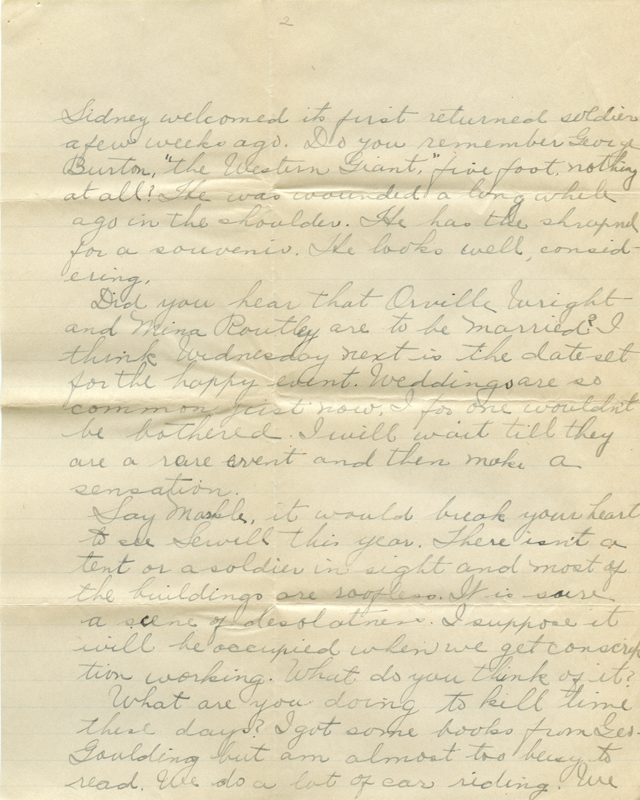 2
Sidney welcomed its first returned soldier
a few weeks ago. Do you remember George
Burton, "the Western Giant," five foot, nothing
at all? He was wounded a long while
ago in the shoulder. He has the shrapnel
for a souvenir. He looks well, consid-
ering.
Did you hear that Orville Wright
and Mina Routley are to be married? I
think Wednesday next is the date set
for the happy event. Weddings are so
common just now. I for one wouldn't
be bothered. I will wait till they
are a rare event and then make a
sensation.
Say Mable, it would break your heart
to see Sewill this year. There isn't a
tent or a soldier in sight and most of
the buildings are roofless. It is sure
a scene of desolatness. I suppose it
will be occupied when we get conscrip
tion working. What do you think of it?
What are you doing to kill time
these days? I got some books from Geo.
Goulding but am almost too busy to
read. We do a lot of car riding. We